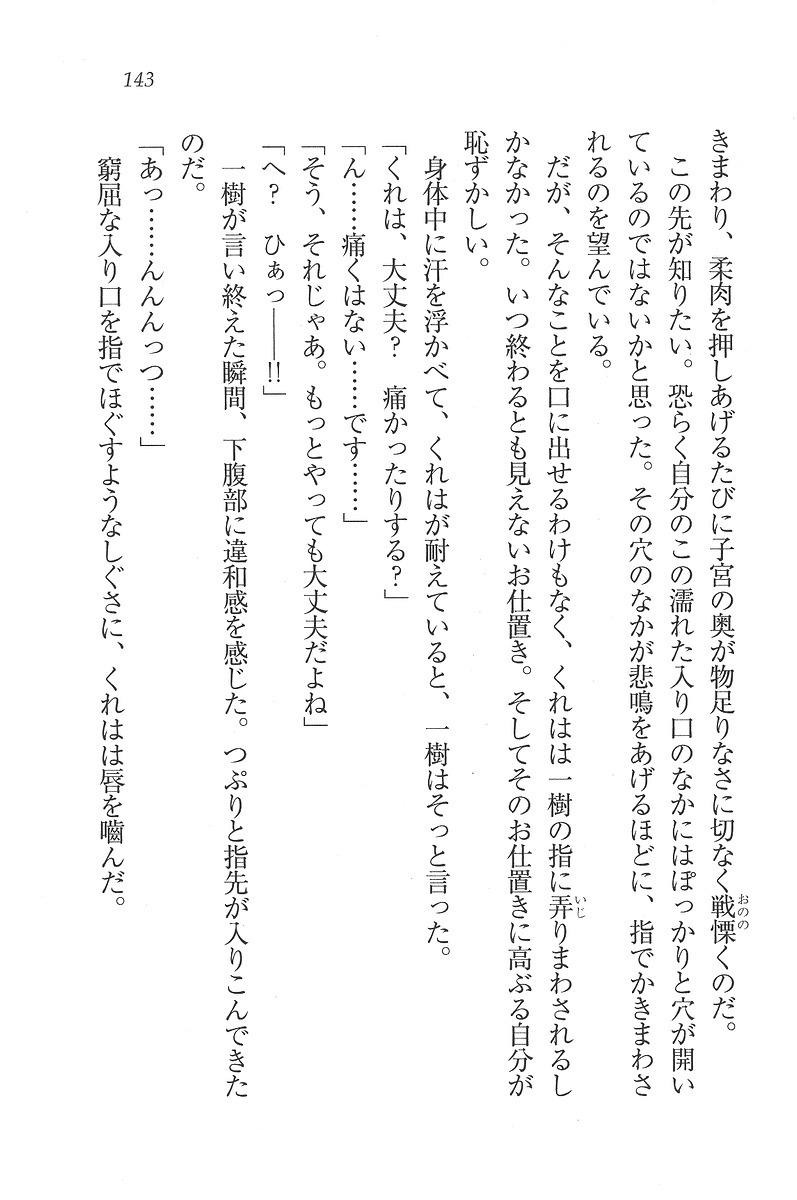 143
きまわり、柔肉を押しあげるたびに子宮の奥が物足りなさに切なく戦慄くのだ。
おのの
この先が知りたい。恐らく自分のこの濡れた入り口のなかにはぽっかりと穴が開い
ているのではないかと思った。その穴のなかが悲鳴をあげるほどに、指でかきまわさ
れるのを望んでいる。
だが、そんなことを口に出せるわけもなく、くれはは一樹の指に弄りまわされるし
いじ
かなかった。いつ終わるとも見えないお仕置き。そしてそのお仕置きに高ぶる自分が
恥ずかしい。
身体中に汗を浮かべて、くれはが耐えていると、一樹はそっと言った。
「くれは、大丈夫?　痛かったりする?」
「ん……痛くはない……です……」
「そう、それじゃあ。もっとやっても大丈夫だよね」
「へ?　ひぁっ――!!」
一樹が言い終えた瞬間、下腹部に違和感を感じた。つぷりと指先が入りこんできた
のだ。
「あっ……んんんっつ……」
窮屈な入り口を指でほぐすようなしぐさに、くれはは唇を嚙んだ。